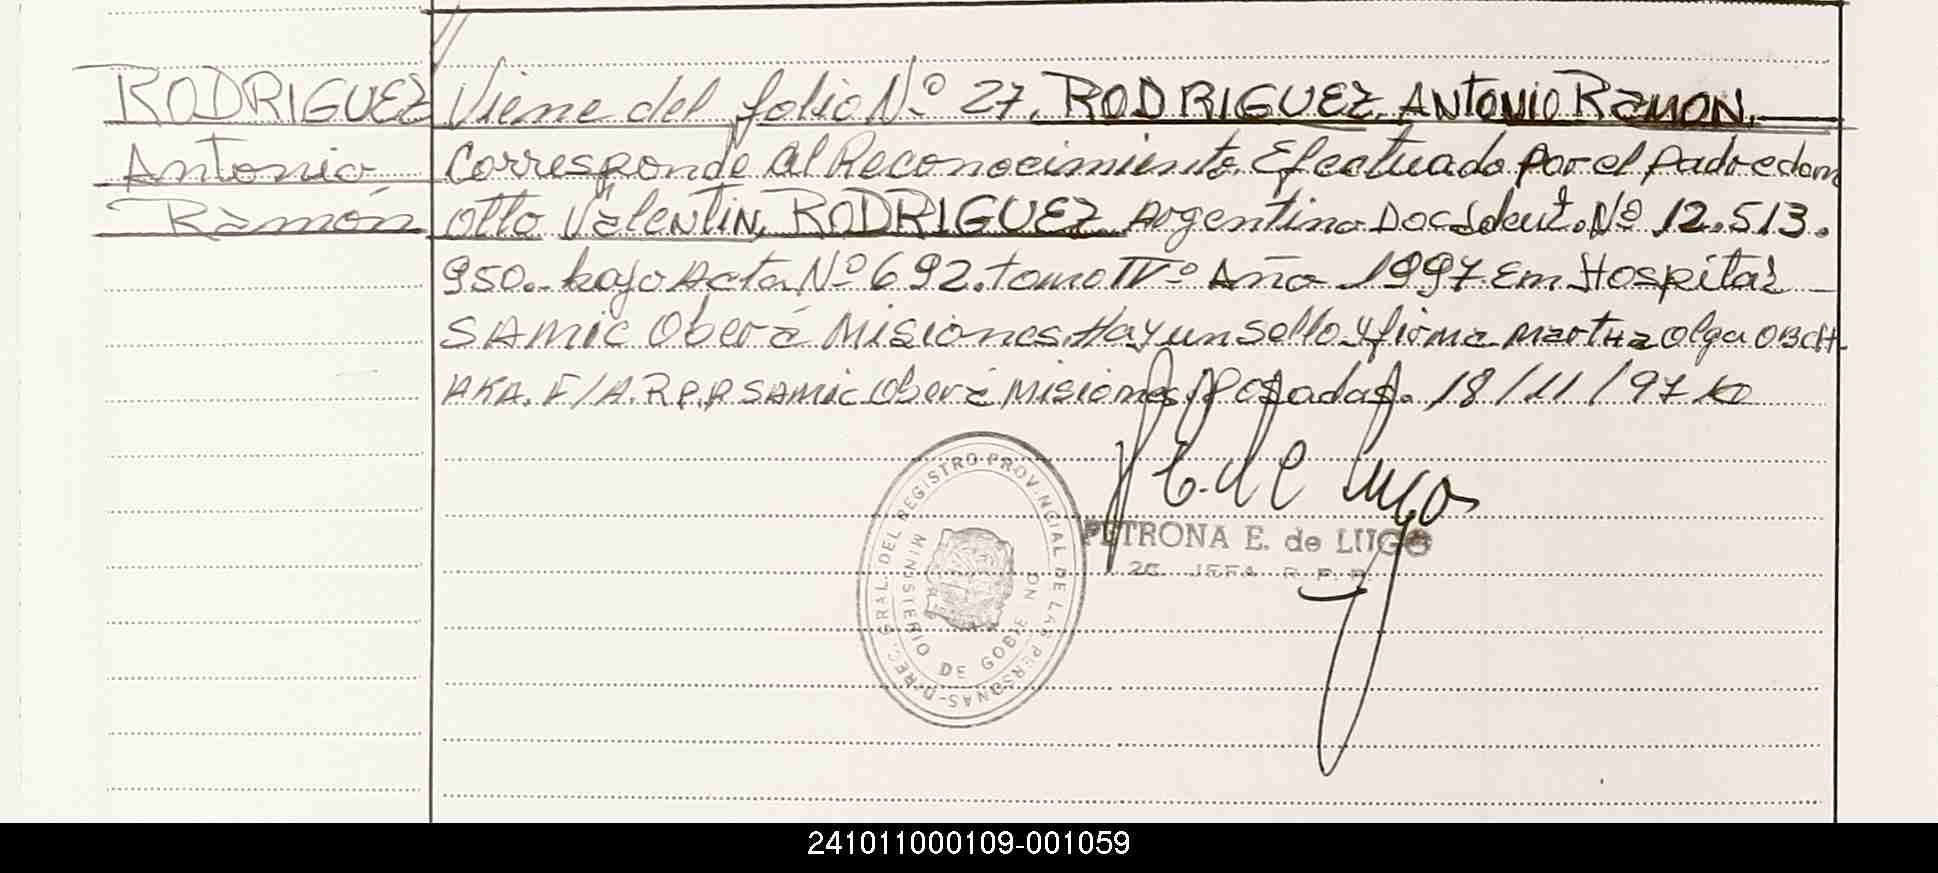 RODRIGUEZ
Antonio
Ramón
Viene del folio Nº 27. RODRIGUEZ, ANTONIO RAMON.
Corresponde al Reconocimiento Efectuado por el padre don
otto Valentin, RODRIGUEZ Argentino Doc Ident. Nº 12.513.
950.- bajo Acta Nº 692. tomo IVº Año 1997. En Hospital
SAMIC Oberá Misiones. Hay un sello y firma Martha Olga OBCH-
AKA. E/A. R.P.P SAMIC Oberá Misiones. Posadas. 18/11/97
de Lugo
PETRONA E. de LUGO
JEFA R. P. P.
REC. GRAL. DEL REGISTRO PROVINCIAL DE LAS PERSONAS
MINISTERIO DE GOBIE
241011000109-001059